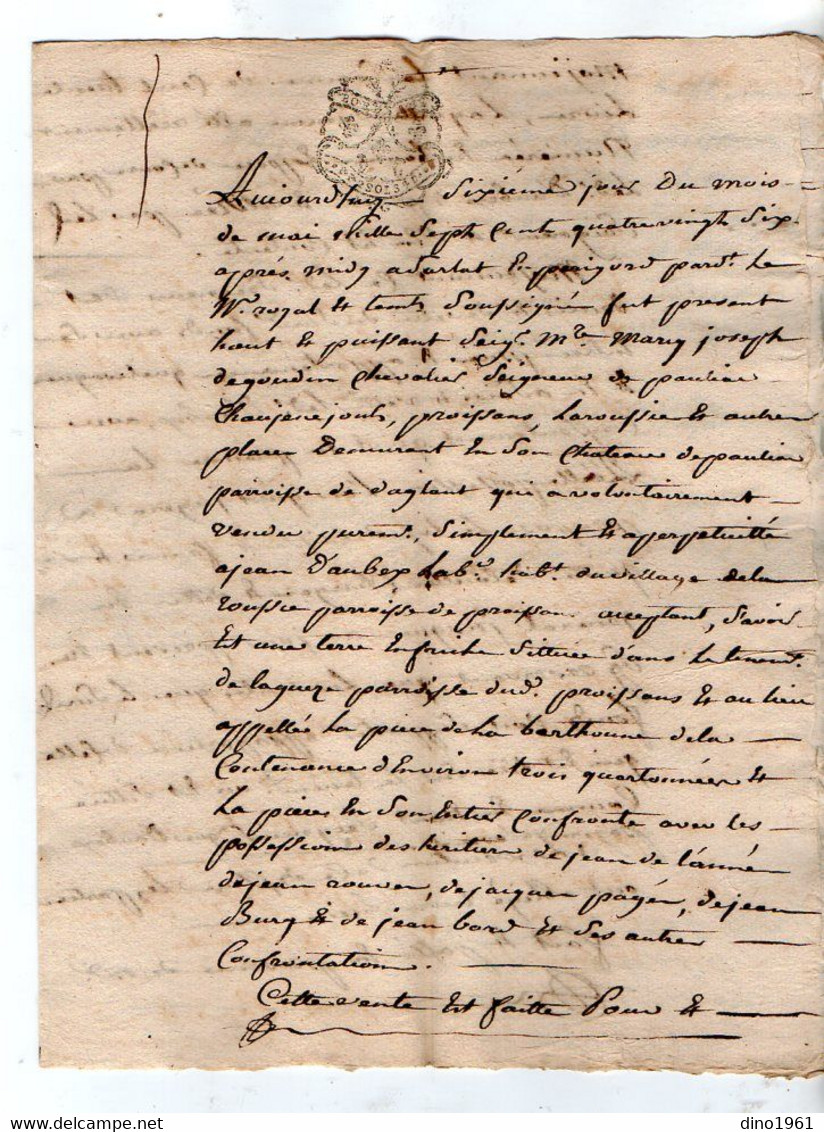 Aujourd'huy sixiéme jour du mois
de mai mille sept cent quatre vingt six
aprés midy a Sarlat en perigord pardt. le
Nre. royal et temts. soussignés fut present
haut et puissant seigr. Mre. Marq joseph
degoudin chevalier seigneur de pauliac
proissans, Laroussie et autres
places demeurant en son chateau depauliac
parroisse de daglant qui a volontairement
vendu puremt., simplement et a perpetuitté
a jean Daubex habt. du village de la
roussie parroisse de proissans acceptant, savoir
est une terre en friche sittuée dans le tenemt.
de lagueze parroisse dud. proissans et au lieu
appellée la piece de la barthoune de la
contenance d'environ trois quartonnées et
la pièce en son entier confronte avec les
possessions des heritiers de jean de
de jean rouven, de jacques pagés, de jean
Burg et de jean bord et des autres
confrontations.
Cette vente est faitte pour et
dino1961